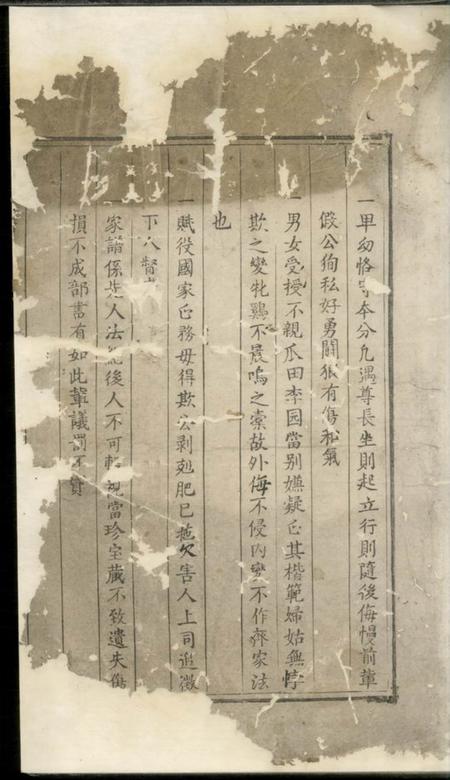 一卑幼恪守本分凡遇尊長坐則起立行則隨後侮慢前輩
假公徇私好勇鬪狠有傷和氣
一男女受授不親瓜田李园當别嫌疑正其楷範婦姑無悖
欺之變牝鷄不晨鳴之索故外侮不侵内變不作齊家法
也
一賦役國家正務毋得欺公剥剋肥已拖欠害人上司追徵
下人督
家譜係先人法後人不可輕視當珍宝藏不致遺失傷
損不成部書有如此輩議罰不貸